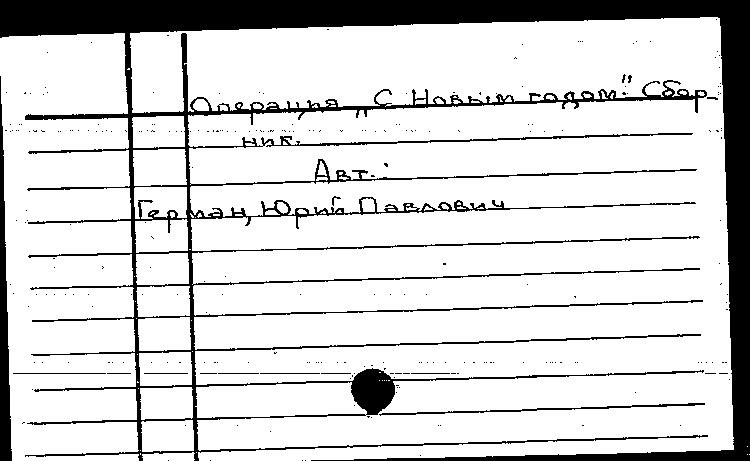 Операция „С Новым годом“. Сбор-
ник.
Авт.:
Герман, Юрий Павлович